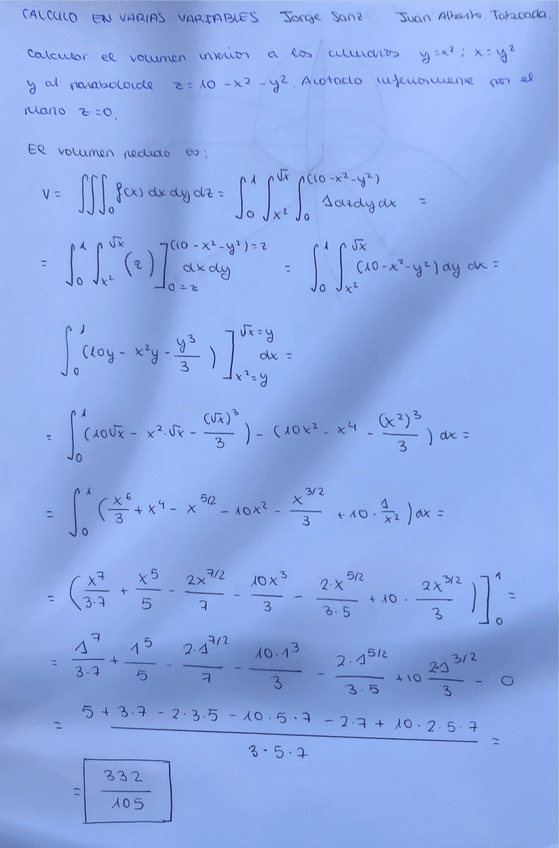 CALCULO EN VARIAS VARIABLES Jorge Sanz Juan Alberto
Calcular el volumen interior a los cilindros y=x²; x=y²
y al paraboloide z=10-x²-y². Acotado inferiormente por el
plano z=0.
El volumen pedido es:
V= ∭₀ f(x) dx dy dz = ∫₀¹ ∫_{x²}^{√x} ∫₀^{(10-x²-y²)} 1 dz dy dx =
= ∫₀¹ ∫_{x²}^{√x} (z) ]_{0=z}^{(10-x²-y²)=z} dx dy = ∫₀¹ ∫_{x²}^{√x} (10-x²-y²) dy dx =
∫₀¹ (10y - x²y - y³/3) ]_{x²=y}^{√x=y} dx =
= ∫₀¹ (10√x - x²·√x - (√x)³/3) - (10x² - x⁴ - (x²)³/3) dx =
= ∫₀¹ (x⁶/3 + x⁴ - x^{5/2} - 10x² - x^{3/2}/3 + 10·1/x²) dx =
= (x⁷/3·7 + x⁵/5 - 2x^{7/2}/7 - 10x³/3 - 2·x^{5/2}/3·5 + 10·2x^{3/2}/3) ]₀¹ =
= 1⁷/3·7 + 1⁵/5 - 2·1^{7/2}/7 - 10·1³/3 - 2·1^{5/2}/3·5 + 10 2·1^{3/2}/3 - 0
= 5 + 3·7 - 2·3·5 - 10·5·7 - 2·7 + 10·2·5·7 / 3·5·7 =
= 332/105